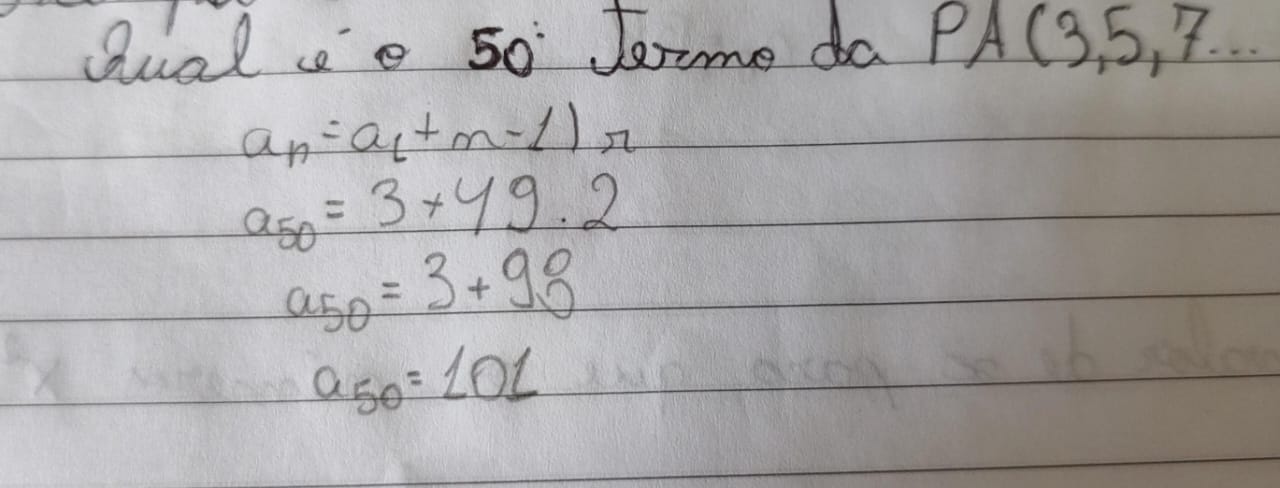 Qual é o 50º Termo da PA (3,5,7...
an = a1 + n - 1) r
a50 = 3 + 49 . 2
a50 = 3 + 98
a50 = 101